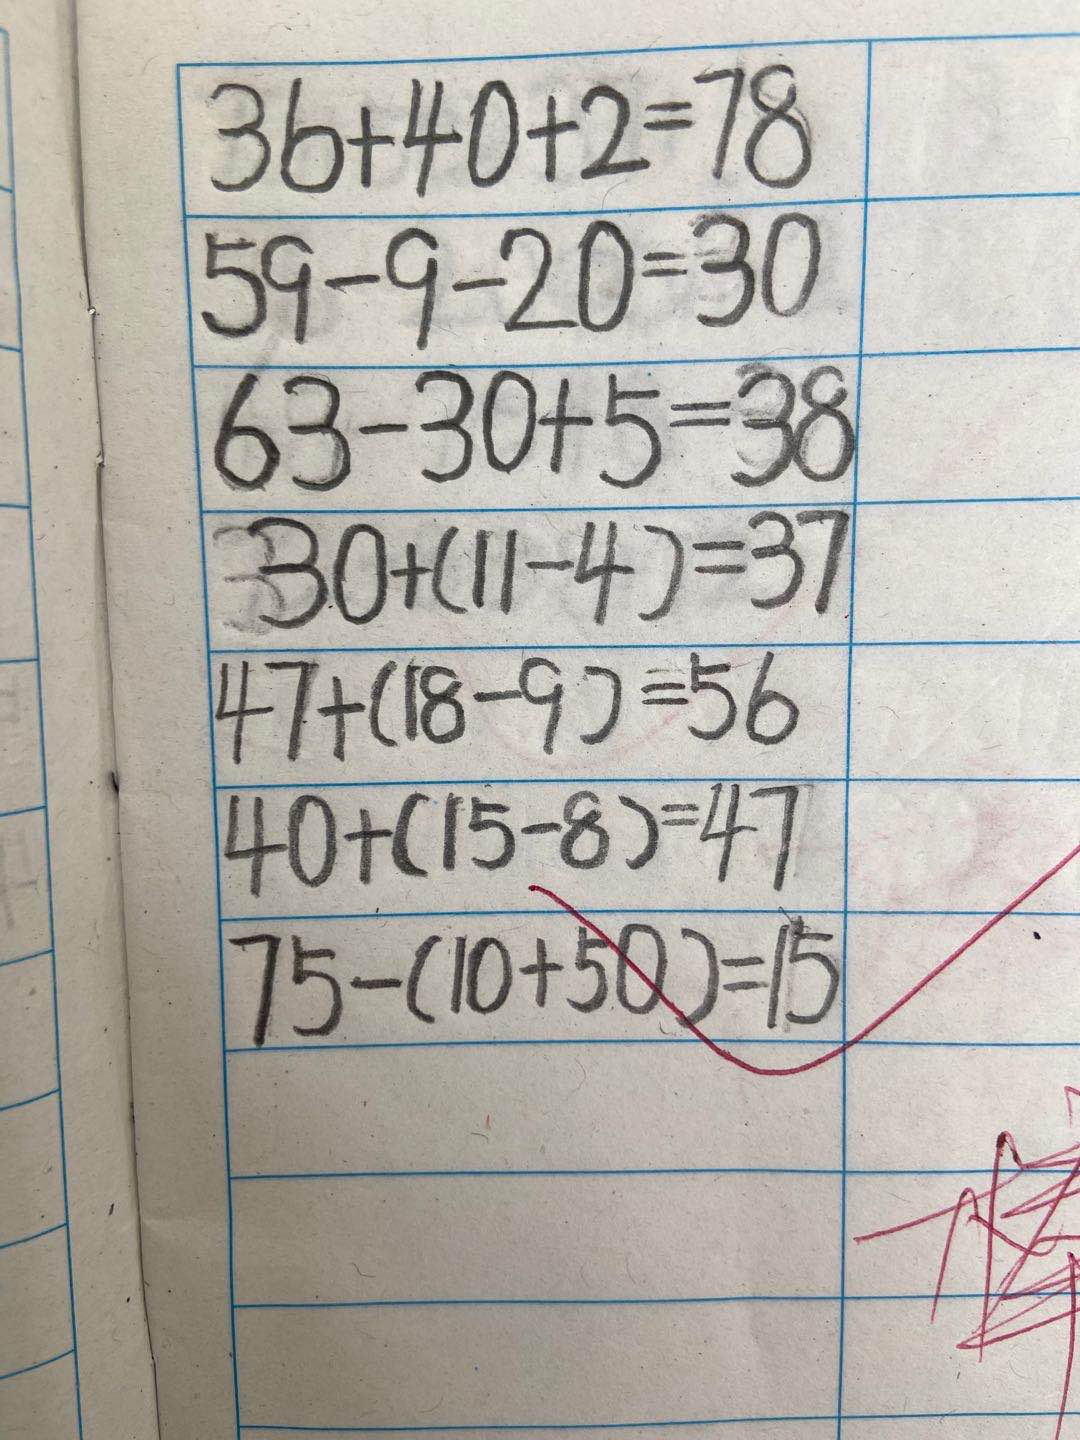 36+40+2=78
59-9-20=30
63-30+5=38
30+(11-4)=37
47+(18-9)=56
40+(15-8)=47
75-(10+50)=15